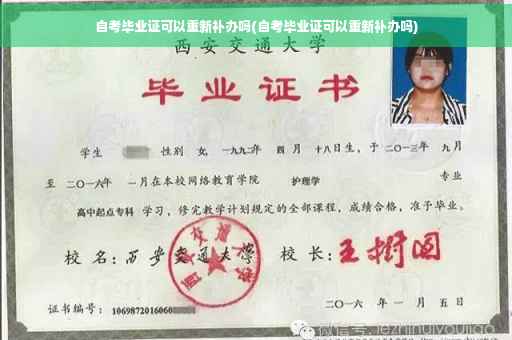 自考毕业证可以重新补办吗(自考毕业证可以重新补办吗)
西安交通大学
毕业证书
学生 性别 女, 一九九二年 四月 十八日生, 于二〇一三年 九月
至 二〇一六年 一月在本校网络教育学院 护理学 专业
高中起点专科 学习, 修完教学计划规定的全部课程, 成绩合格, 准予毕业。
校名: 西安交通大学 校长: 王树国
证书编号: 1069872016060
二〇一六年 一月 五日
微信号: jezhihuiyoujiao